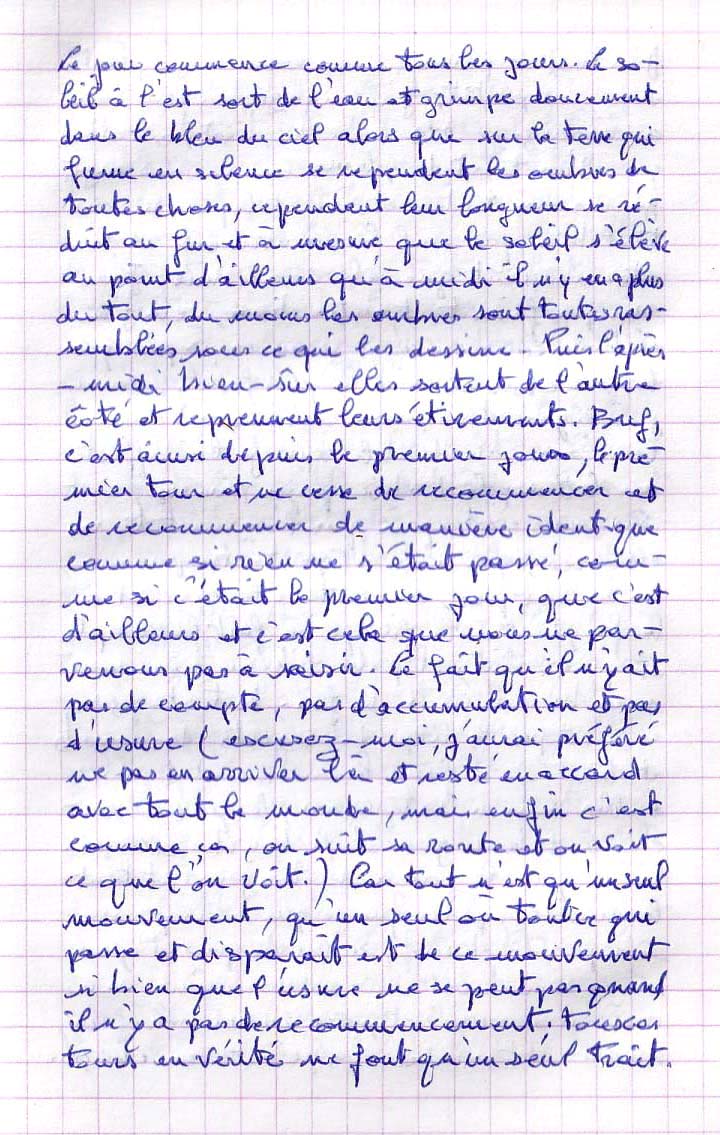 Le jour commence comme tous les jours. Le so-
leil à l'est sort de l'eau et grimpe doucement
dans le bleu du ciel alors que sur la terre qui
fume en silence se rependent les ombres de
toutes choses, cependant leur longueur se ré-
duit au fur et à mesure que le soleil s'élève
au point d'ailleurs qu'à midi il n'y en a plus
du tout, du moins les ombres sont toutes ras-
semblées sous ce qui les dessine. Puis l'après
-midi bien-sûr elles sortent de l'autre
côté et reprennent leurs étirements. Bref,
c'est ainsi depuis le premier jour, le pre-
mier tour et ne cesse de recommencer et
de recommencer de manière identique
comme si rien ne s'était passé, com-
me si c'était le premier jour, que c'est
d'ailleurs et c'est cela que nous ne par-
venons pas à saisir. Le fait qu'il n'y ait
pas de compte, pas d'accumulation et pas
d'usure (excusez-moi, j'aurai préféré
ne pas en arriver là et resté en accord
avec tout le monde, mais enfin c'est
comme ça, on suit sa route et on voit
ce que l'on voit.) Car tout n'est qu'un seul
mouvement, qu'un seul où tout ce qui
passe et disparaît est de ce mouvement
si bien que l'usure ne se peut pas quand
il n'y a pas de recommencement. Tous ces
tours en vérité ne font qu'un seul trait.